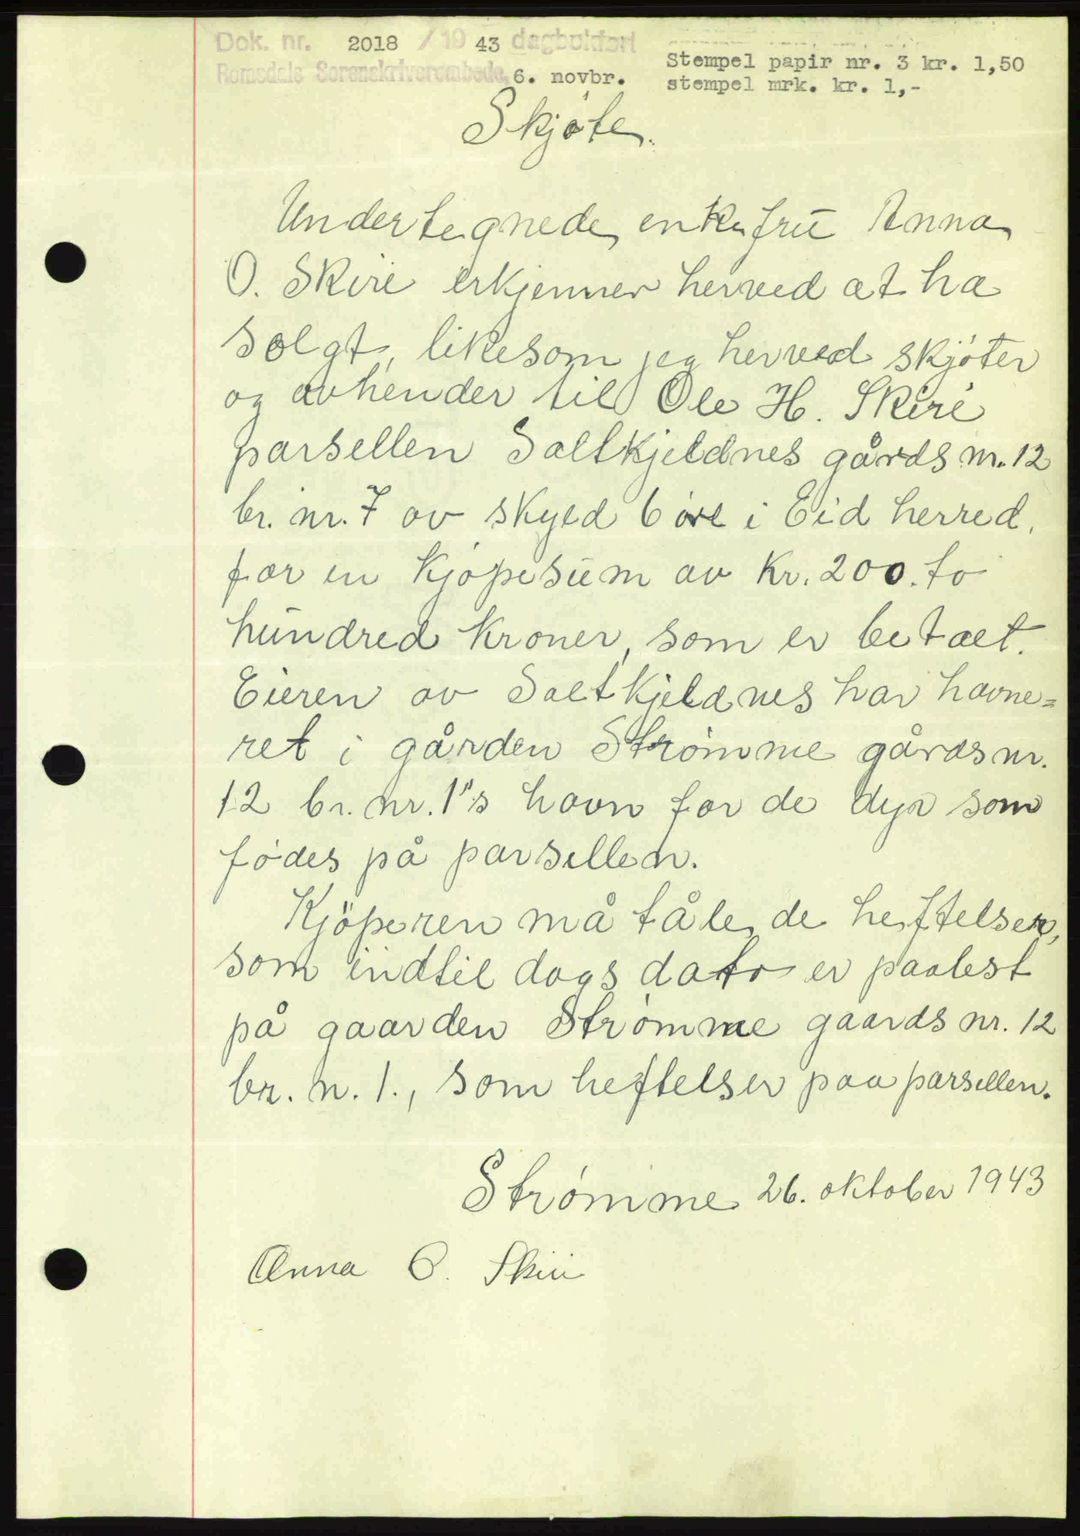 Dok. nr. 2018 / 19 43 dagbokført
Romsdals Sorenskriverembede, 6. novbr.
Stempel papir nr. 3 kr. 1,50
stempel mrk. kr. 1,-
Skjøte.
Undertegnede, enkefru Anna
O. Skiri erkjenner herved at ha
solgt, likesom jeg herved skjøter
og avhender til Ole H. Skiri
parsellen Saltkjeldnes gårds nr. 12
br. nr. 7 av skyld 6 øre i Eid herred.
for en kjøpesum av Kr. 200. to
hundred kroner, som er betalt.
Eieren av Saltkjeldnes har havne=
ret i gården Strømme gårdsnr.
12 br. nr. 1"s havn for de dyr som
fødes på parsellen.
Kjöperen må tåle de heftelser,
som indtil dags dato er paalest
på gaarden Strømme gaards nr. 12
br. n. 1., som heftelser paa parsellen.
Strømme 26. oktober 1943
Anna O. Skiri